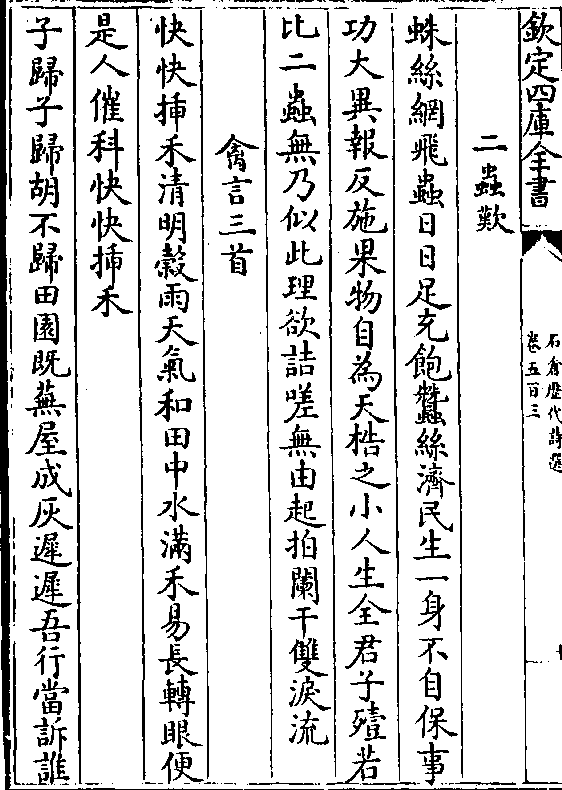 欽定四庫全書
石倉歷代詩選
卷五百三
二蟲歎
蛛絲網飛蟲日日足充飽蠶絲濟民生一身不自保事
功大異報反施果物自為天梏之小人生全君子殪若
比二蟲無乃似此理欲詰嗟無由起拍闌干雙淚流
禽言三首
快快揷禾清明穀雨天氣和田中水滿禾易長轉眼便
是人催科快快揷禾
子歸子歸胡不歸田園既蕪屋成灰遲遲吾行當訴誰